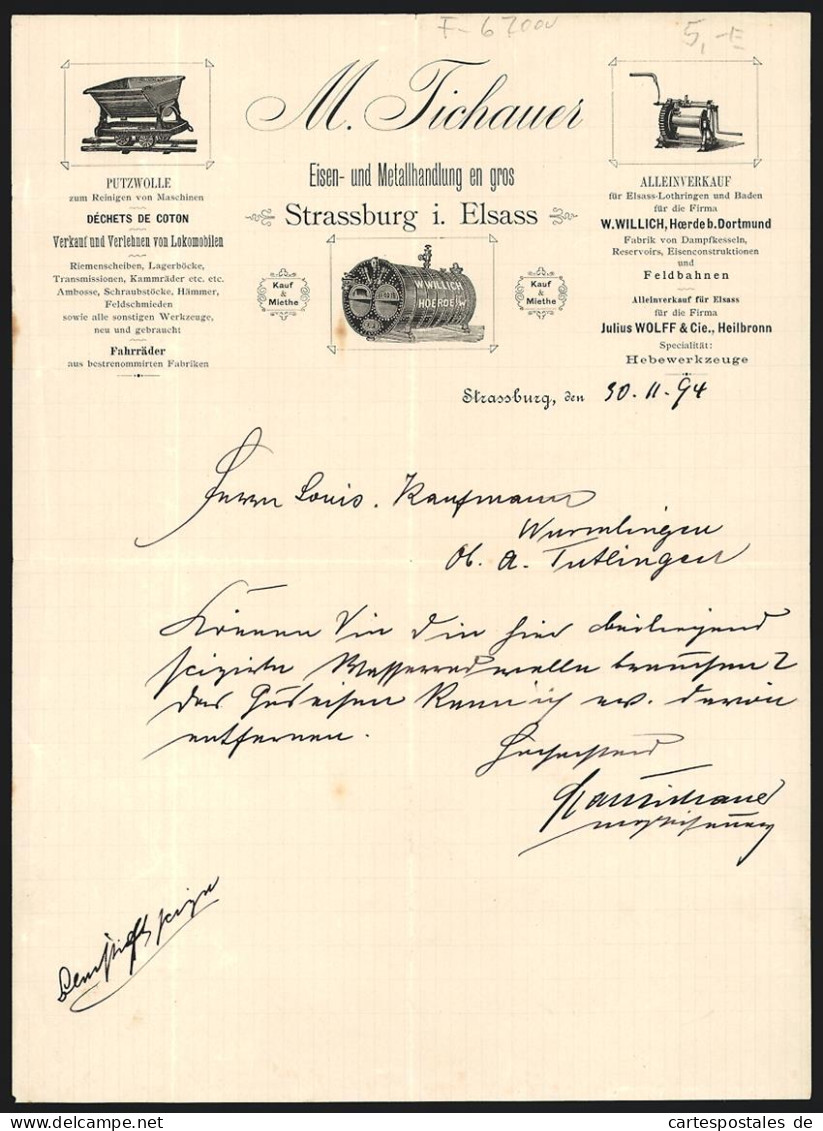 F-67000
5,-E
M. Tichauer
Eisen- und Metallhandlung en gros
Strassburg i. Elsass
PUTZWOLLE
zum Reinigen von Maschinen
DÉCHETS DE COTON
Verkauf und Verlehnen von Lokomobilen
Riemenscheiben, Lagerböcke,
Transmissionen, Kammräder etc. etc.
Ambosse, Schraubstöcke, Hämmer,
Feldschmieden
sowie alle sonstigen Werkzeuge,
neu und gebraucht
Fahrräder
aus bestrenommirten Fabriken
Kauf
&
Miethe
W. WILLICH
HOERDE i/W
Kauf
&
Miethe
ALLEINVERKAUF
für Elsass-Lothringen und Baden
für die Firma
W. WILLICH, Hœrde b. Dortmund
Fabrik von Dampfkesseln,
Reservoirs, Eisenconstruktionen
und
Feldbahnen
Alleinverkauf für Elsass
für die Firma
Julius WOLFF & Cie., Heilbronn
Specialität:
Hebewerkzeuge
Strassburg, den 30. 11. 94
Herrn Louis. Kaufmann
Wurmlingen
Ob. A. Tutlingen
Können Sie die hier beiliegend
scizirte Wasserradwelle brauchen?
das Guseisen kann ich ev. davon
entfernen.
Hochachtend
cartespostales de